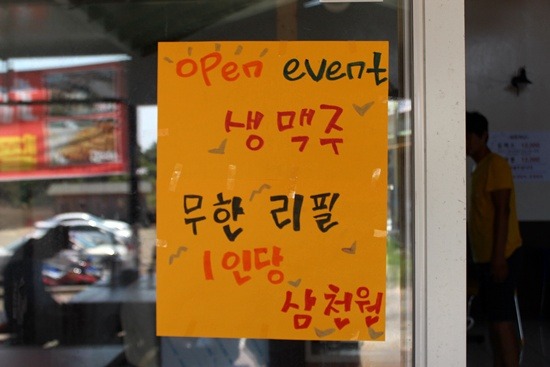 open event
생맥주
무한 리필
1인당
삼천원